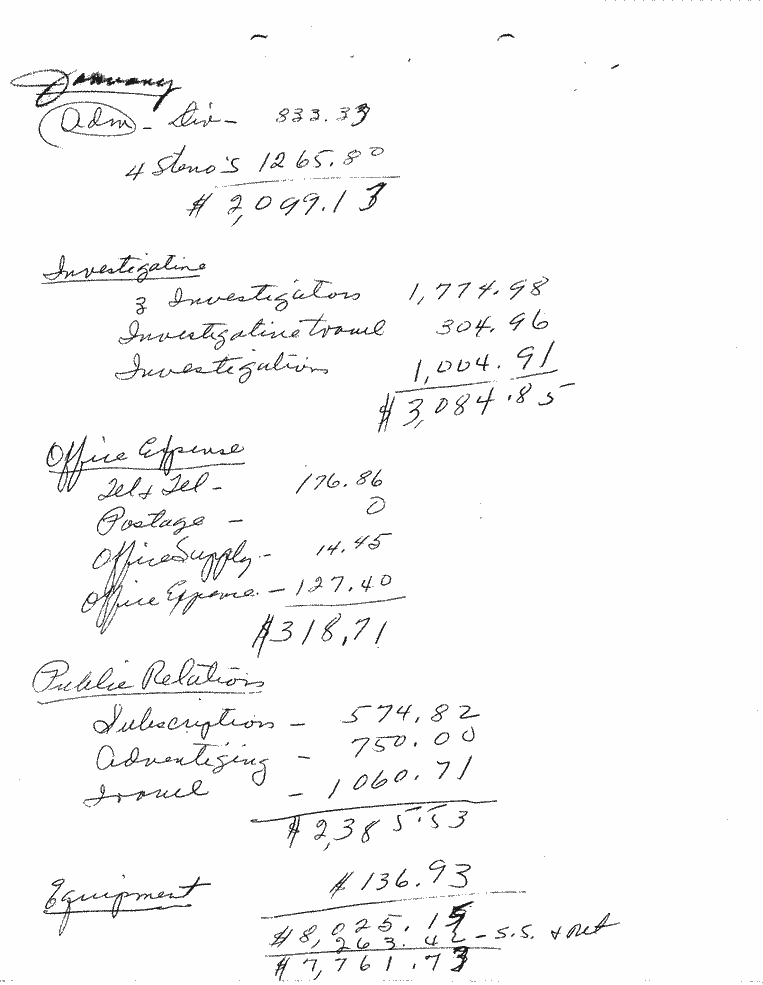 January
Adm - Div - 833.33
4 Steno's 1265.80
$ 2,099.13
Investigative
3 Investigators 1,774.98
Investigative travel 304.96
Investigations 1,004.91
$ 3,084.85
Office Expense
Tel & Tel - 176.86
Postage - 0
Office Supply - 14.45
Office Expense - 127.40
$318.71
Public Relations
Subscription - 574.82
Advertizing - 750.00
Travel - 1060.71
$ 2,385.53
Equipment $ 136.93
$8,025.15
263.42 - S.S. & Ret
$7,761.73